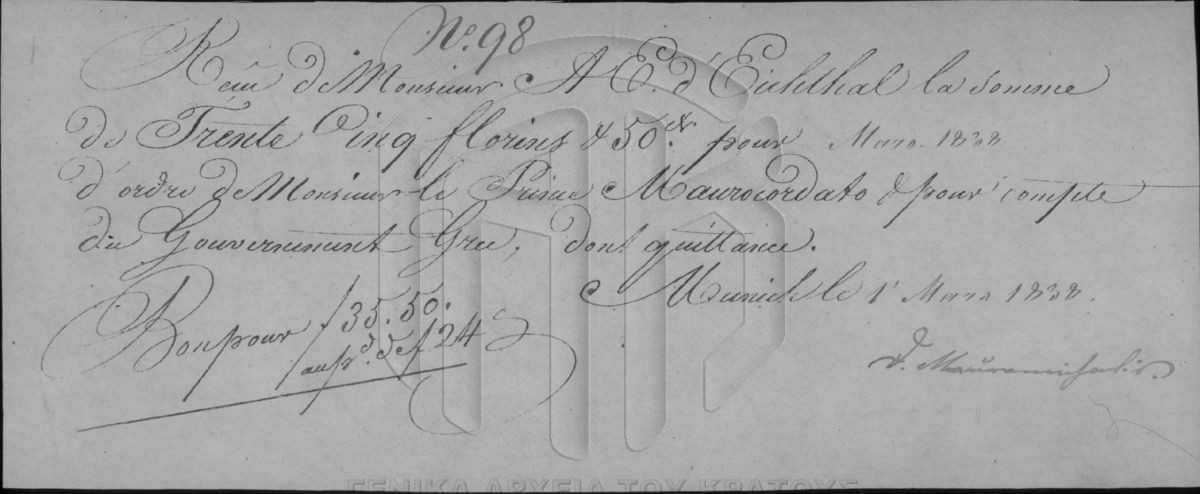 No. 98
Reçu de Monsieur A E. d'Eichthal la somme
de Trente Cinq florins & 50 xr. pour Mars 1838
d'ordre de Monsieur le Prince Maurocordato & pour compte
du Gouvernement Grec, dont quittance.
Munich le 1r Mars 1838.
Bon pour f 35. 50.
au pd. de f 24
D. Mauromichalis.
ΓΕΝΙΚΑ ΑΡΧΕΙΑ ΤΟΥ ΚΡΑΤΟΥΣ